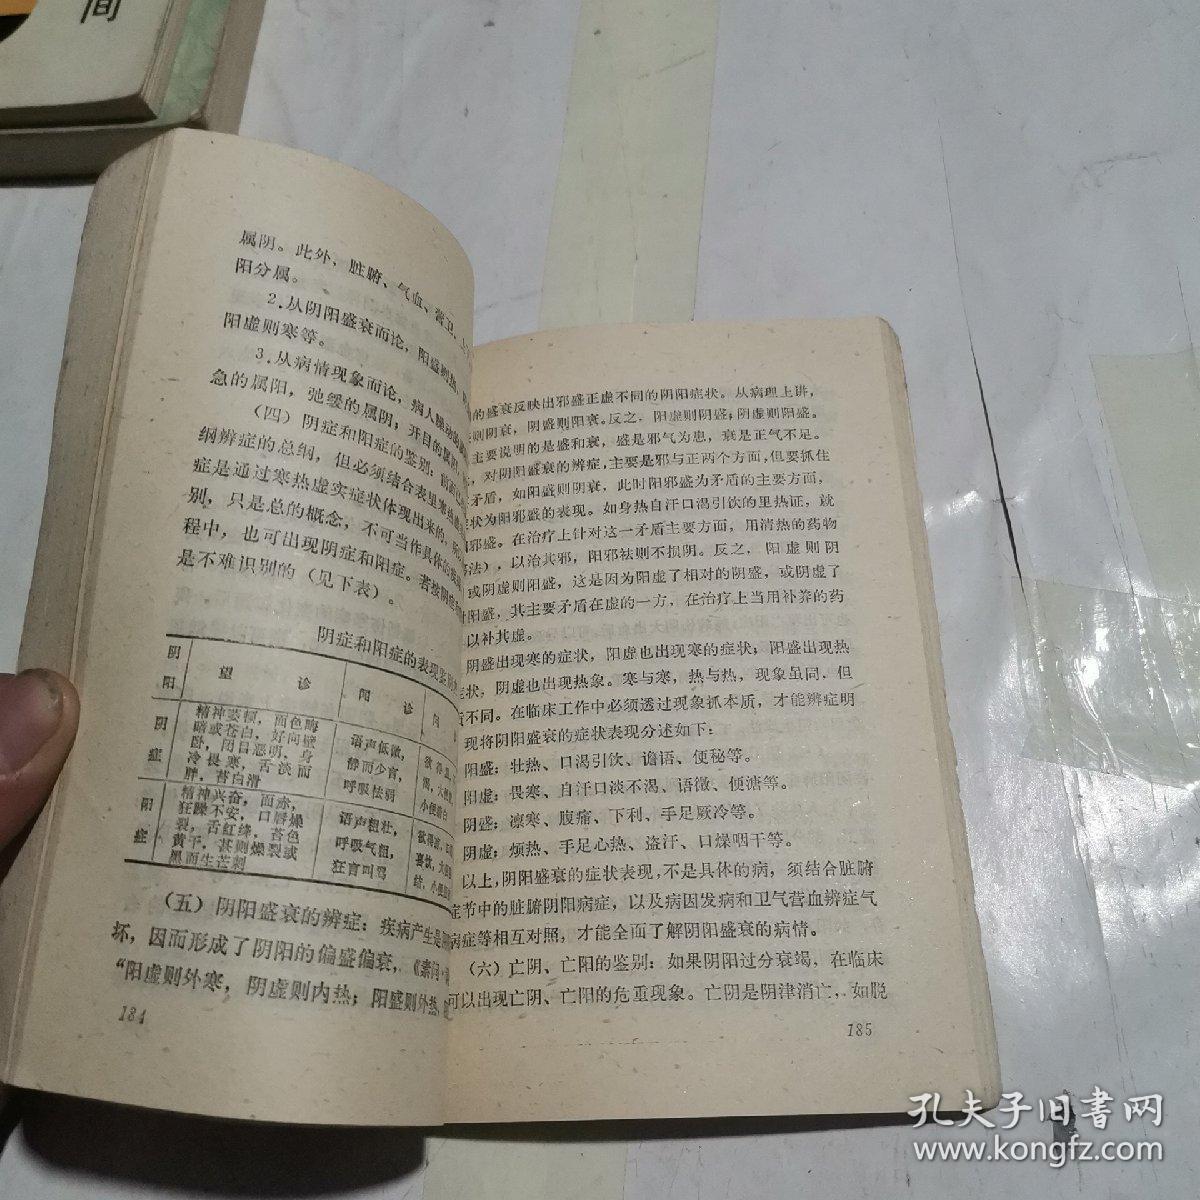 间
属阴。此外，脏腑、气血、营卫、
阳分属。
2.从阴阳盛衰而论，阳盛则热，
阳虚则寒等。
3.从病情现象而论，病人躁动的
急的属阳，弛缓的属阴；开目的属阳，
（四）阴症和阳症的鉴别：
纲辨症的总纲，但必须结合表里寒热
症是通过寒热虚实症状体现出来的，所
别，只是总的概念，不可当作具体的
程中，也可出现阴症和阳症。若按阴
是不难识别的（见下表）。
阴症和阳症的表现鉴别
阴阳 望诊 闻诊 问
阴症 精神萎顿，面色晦
暗或苍白，好向壁
卧，闭目恶明，身
冷畏寒，舌淡而
胖，苔白滑
语声低微，
静而少言，
呼吸怯弱
小便清白
阳症 精神兴奋，面赤，
狂躁不安，口唇燥
裂，舌红绛，苔色
黄干，甚则燥裂或
黑而生芒刺
语声粗壮，
呼吸气粗，
狂言叫骂
（五）阴阳盛衰的辨症：疾病产生是
坏，因而形成了阴阳的偏盛偏衰，《素问·
“阳虚则外寒，阴虚则内热；阳盛则外热，
184
的盛衰反映出邪盛正虚不同的阴阳症状。从病理上讲，
则阴衰，阴盛则阳衰。反之，阳虚则阴盛；阴虚则阳盛。
主要说明的是盛和衰，盛是邪气为患，衰是正气不足。
，对阴阳盛衰的辨症，主要是邪与正两个方面，但要抓住
矛盾，如阳盛则阴衰，此时阳邪盛为矛盾的主要方面，
状为阳邪盛的表现。如身热自汗口渴引饮的里热证，就
阳邪盛。在治疗上针对这一矛盾主要方面，用清热的药物
法），以治其邪，阳邪祛则不损阴。反之，阳虚则阴
或阴虚则阳盛，这是因为阳虚了相对的阴盛，或阴虚了
阳盛，其主要矛盾在虚的一方，在治疗上当用补养的药
以补其虚。
阴盛出现寒的症状，阳虚也出现寒的症状；阳盛出现热
症状，阴虚也出现热象。寒与寒，热与热，现象虽同，但
质不同。在临床工作中必须透过现象抓本质，才能辨症明
现将阴阳盛衰的症状表现分述如下：
阳盛：壮热、口渴引饮、谵语、便秘等。
阳虚：畏寒、自汗口淡不渴、语微、便溏等。
阴盛：凛寒、腹痛、下利、手足厥冷等。
阴虚：烦热、手足心热、盗汗、口燥咽干等。
以上，阴阳盛衰的症状表现，不是具体的病，须结合脏腑
症节中的脏腑阴阳病症，以及病因发病和卫气营血辨症气
病症等相互对照，才能全面了解阴阳盛衰的病情。
（六）亡阴、亡阳的鉴别：如果阴阳过分衰竭，在临床
可以出现亡阴、亡阳的危重现象。亡阴是阴津消亡，如脱
185
孔夫子旧书网
www.kongfz.com